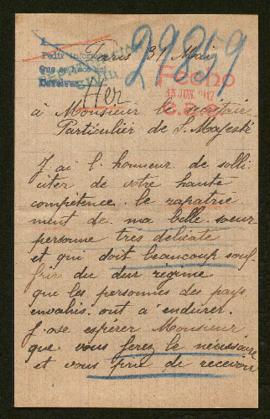 Paris 31 Mai
29859
Fecho
Her
à Monsieur le secrétaire
Particulier de S. Majesté
J'ai l'honneur de solli
citer de votre haute
compétence le rapatrie
ment de ma belle soeur
personne très délicate
et qui doit beaucoup souf
frir du dur regime
que les personnes des pays
envahis ont a endurer.
J'ose espérer Monsieur
que vous ferez le nécessaire
et vous prie de recevoir